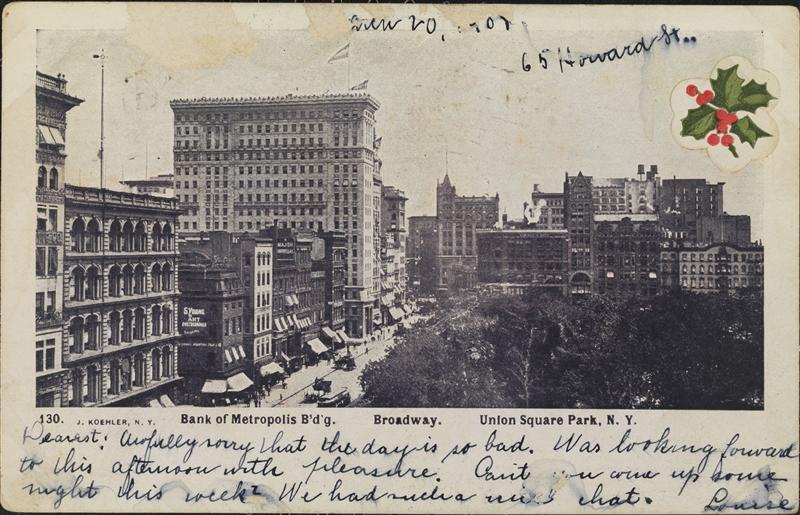 20, 1901
65 Howard St.
MAJOR
S. YOUNG
ART
130. J. KOEHLER, N. Y. Bank of Metropolis B'd'g. Broadway. Union Square Park, N. Y.
Dearest: Awfully sorry that the day is so bad. Was looking forward
to this afternoon with pleasure. Can't you come up some
night this week? We had such a nice chat.
Louise